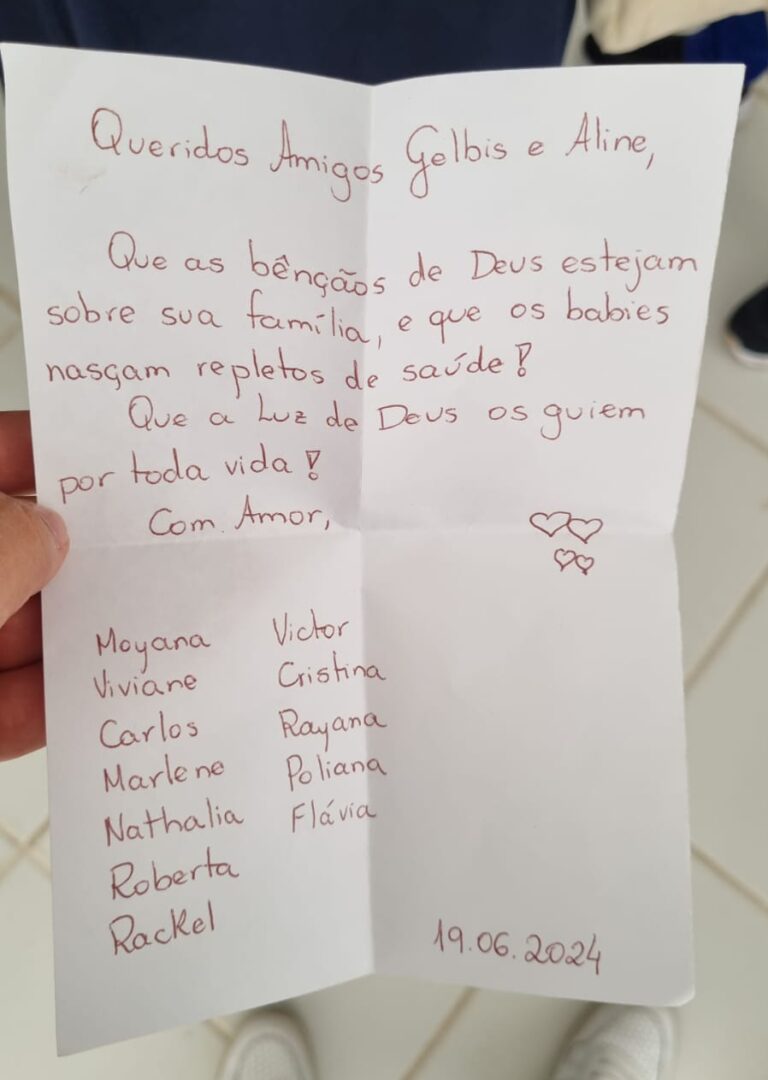 Queridos Amigos Gelbis e Aline,
Que as bênçãos de Deus estejam
sobre sua família, e que os babies
nasçam repletos de saúde!
Que a Luz de Deus os guiem
por toda vida!
Com Amor,
Moyana Victor
Viviane Cristina
Carlos Rayana
Marlene Poliana
Nathalia Flávia
Roberta
Rackel
19.06.2024